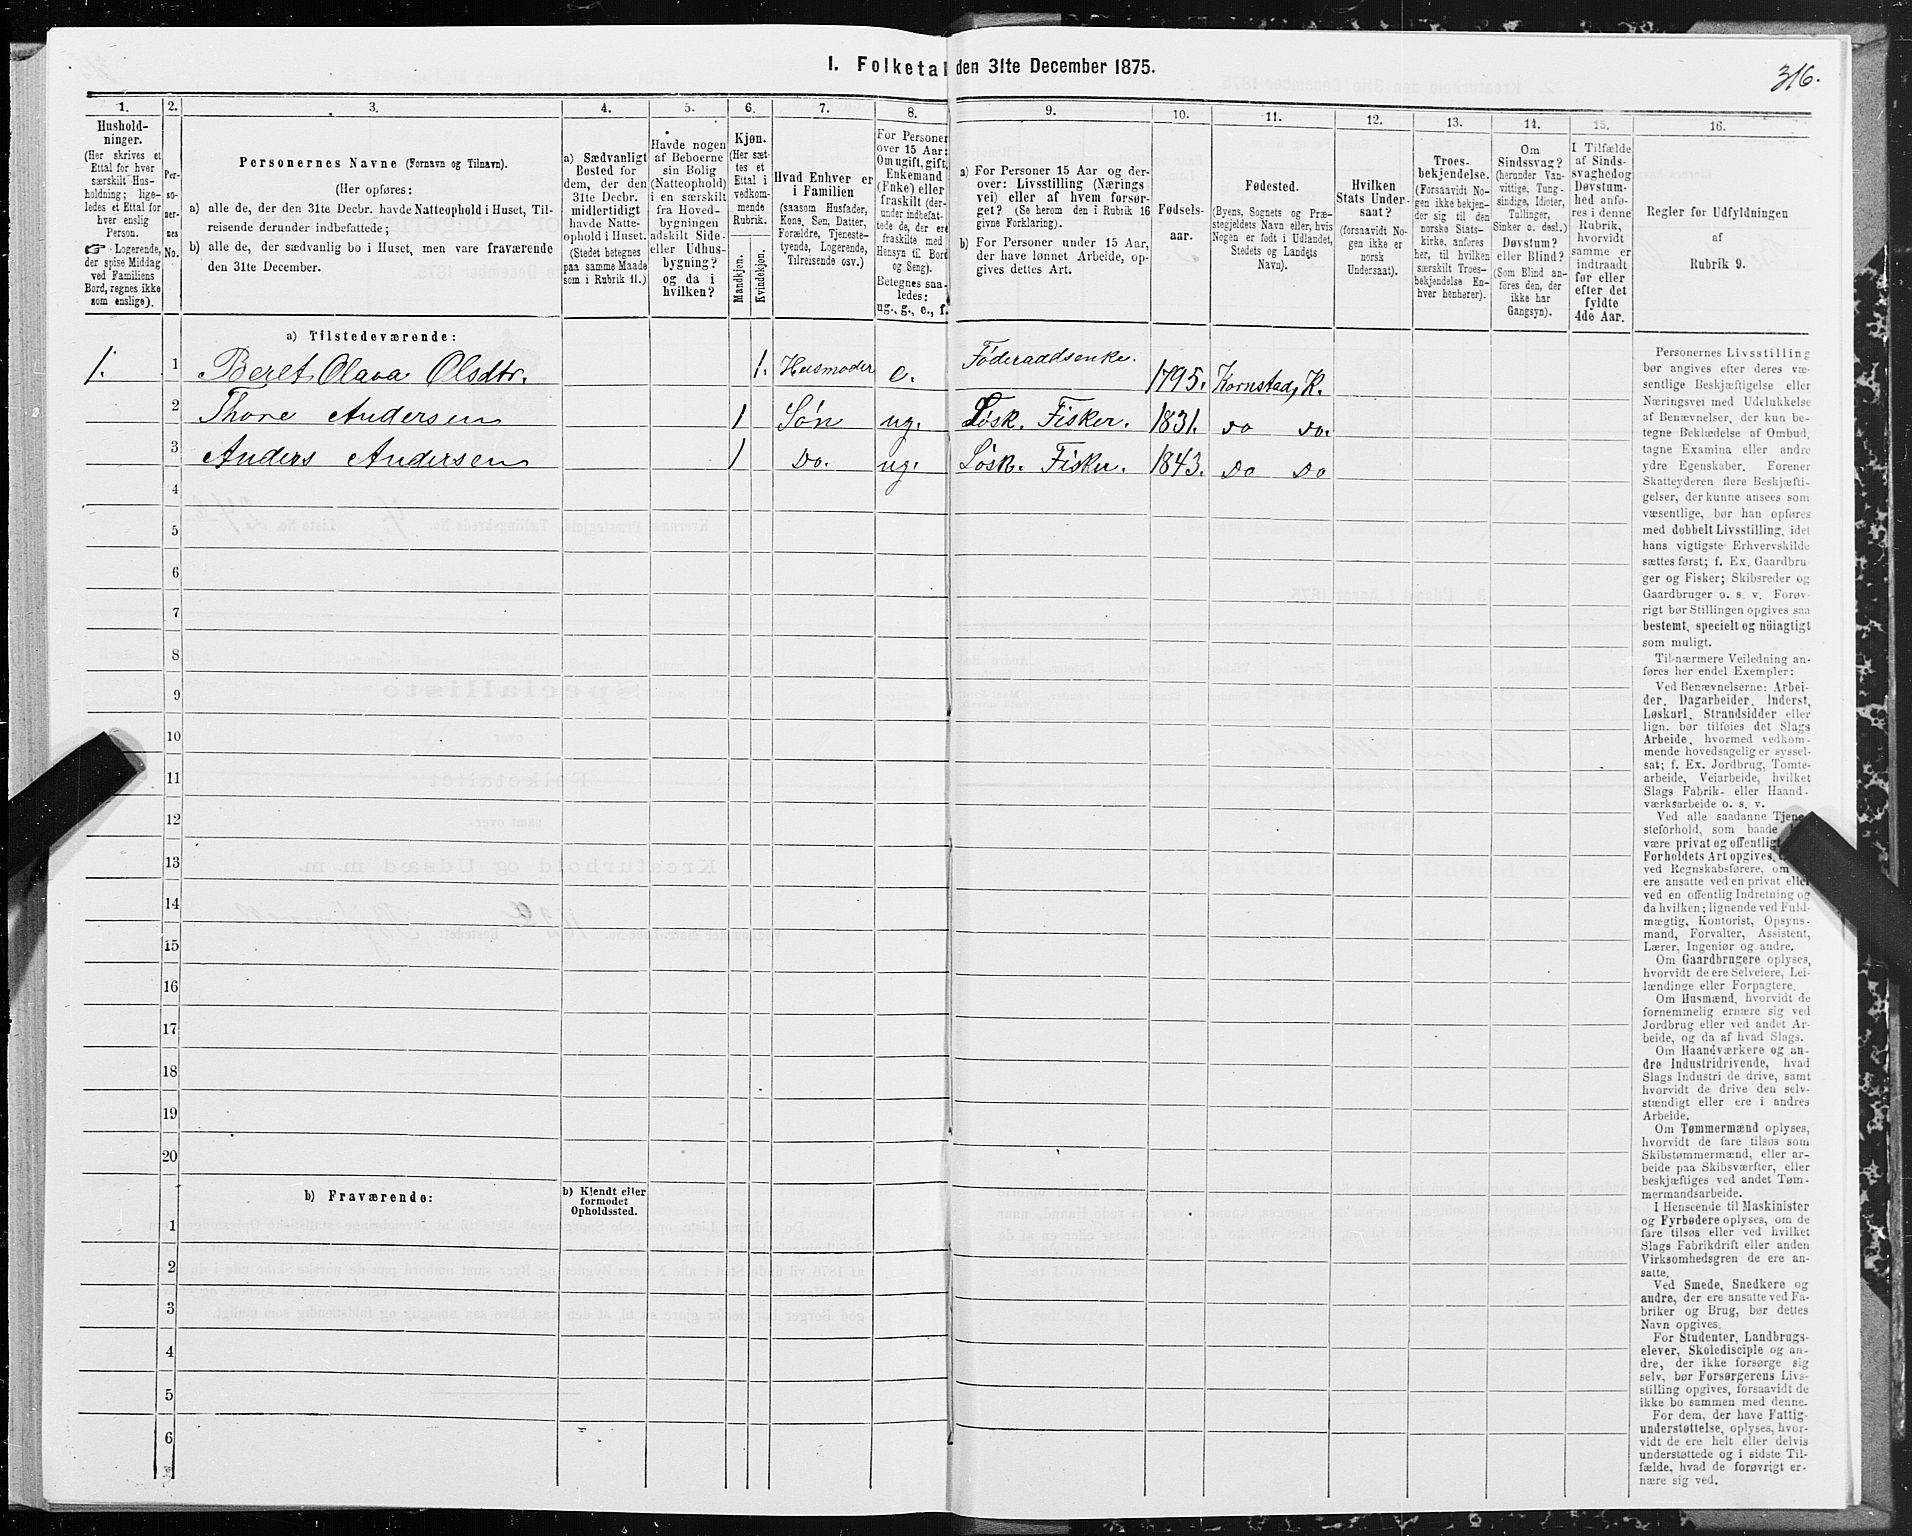 1. Folketal den 31te December 1875.
316.
1. 2. 3. 4. 5. 6. 7. 8. 9. 10. 11. 12. 13. 14. 15. 16.
Hushold-
ninger.
(Her skrives et
Ettal for hver
særskilt Hus-
holdning; lige-
ledes et Ettal for
hver enslig
Person.
☞ Logerende,
der spise Middag
ved Familiens
Bord, regnes ikke
som enslige).
Per-
so-
ner-
nes
No.
Personernes Navne (Fornavn og Tilnavn).
(Her opføres:
a) alle de, der den 31te Decbr. havde Natteophold i Huset, Til-
reisende derunder indbefattede;
b) alle de, der sædvanlig bo i Huset, men vare fraværende
den 31te December.
a) Sædvanligt
Bosted for
dem, der den
31te Decbr.
midlertidigt
havde Natte-
ophold i Huset.
(Stedet betegnes
paa samme Maade
som i Rubrik 11.)
Havde nogen
af Beboerne
sin Bolig
(Natteophold)
i en særskilt
fra Hoved-
bygningen
adskilt Side-
eller Udhus-
bygning?
og da i
hvilken?
Kjøn.
(Her sæt-
tes et
Ettal i
vedkom-
mende
Rubrik.
Mandkjøn.
Kvindekjøn.
Hvad Enhver er
i Familien
(saasom Husfader,
Kone, Søn, Datter,
Forældre, Tjeneste-
tyende, Logerende,
Tilreisende osv.)
For Personer
over 15 Aar:
Om ugift, gift,
Enkemand
(Enke) eller
fraskilt (der-
under indbefat-
tede de, der ere
fraskilte med
Hensyn til Bord
og Seng).
Betegnes saa-
ledes:
ug., g., e., f.
a) For Personer 15 Aar og der-
over: Livsstilling (Nærings
vei) eller af hvem forsør-
get? (Se herom den i Rubrik 16
givne Forklaring).
b) For Personer under 15 Aar,
der have lønnet Arbeide, op-
gives dettes Art.
Fødsels-
aar.
Fødested.
(Byens, Sognets og Præ-
stegjeldets Navn eller, hvis
Nogen er født i Udlandet,
Stedets og Landets
Navn).
Hvilken
Stats Under-
saat?
(forsaavidt No-
gen ikke er
norsk
Undersaat).
Troes-
bekjendelse.
(Forsaavidt No-
gen ikke bekjen-
der sig til den
norske Stats-
kirke, anføres
her, til hvilken
særskilt Troes-
bekjendelse En-
hver henhører).
Om
Sindssvag?
(herunder Van-
vittige, Tung-
sindige, Idioter,
Tullinger,
Sinker o. desl.)
Døvstum?
eller Blind?
(Som Blind an-
føres den, der
ikke har
Gangsyn).
I Tilfælde
af Sinds-
svaghed og
Døvstum-
hed anfø-
res i denne
Rubrik,
hvorvidt
samme er
indtraadt
før eller
efter det
fyldte
4de Aar.
Regler for Udfyldningen
af
Rubrik 9.
a) Tilstedeværende:
1. 1 Beret Olava Olsdtr. 1. Husmoder e. Föderaadsenke. 1795. Kornstad, K.
2 Thore Andersen 1 Sön ug. Lösk. Fisker. 1831. Do Do.
3 Anders Andersen 1 Do. ug. Lösk. Fisker. 1843. Do Do
4
5
6
7
8
9
10
11
12
13
14
15
16
17
18
19
20
b) Fraværende:
b) Kjendt eller
formodet
Opholdssted.
1
2
3
4
5
6
Personernes Livsstilling
bør angives efter deres væ-
sentlige Beskjæftigelse eller
Næringsvei med Udelukkelse
af Benævnelser, der kun be-
tegne Beklædelse af Ombud,
tagne Examina eller andre
ydre Egenskaber. Forener
Skatteyderen flere Beskjæfti-
gelser, der kunne ansees som
væsentlige, bør han opføres
med dobbelt Livsstilling, idet
hans vigtigste Erhvervskilde
sættes først; f. Ex. Gaardbru
ger og Fisker; Skibsreder og
Gaardbruger o. s. v. Forøv-
rigt bør Stillingen opgives saa
bestemt, specielt og nöiagtigt
som muligt.
Til nærmere Veiledning an-
føres her endel Exempler:
Ved Benævnelserne: Arbei-
der, Dagarbeider, Inderst,
Løskarl, Strandsidder eller
lign. bør tilføies det Slags
Arbeide, hvormed vedkom-
mende hovedsagelig er syssel-
sat; f. Ex. Jordbrug, Tomte-
arbeide, Veiarbeide, hvilket
Slags Fabrik- eller Haand-
værksarbeide o. s. v.
Ved alle saadanne Tjene-
steforhold, som baade
være privat og offentligt
Forholdets Art opgives,
ved Regnskabsførere, om
ere ansatte ved en privat eller
ved en offentlig Indretning og
da hvilken; lignende ved Fuld-
mægtig, Kontorist, Opsyns-
mand, Forvalter, Assistent,
Lærer, Ingeniør og andre.
Om Gaardbrugere oplyses,
hvorvidt de ere Selveiere, Lei-
lændinge eller Forpagtere.
Om Husmænd, hvorvidt de
fornemmelig ernære sig ved
Jordbrug eller ved andet Ar-
beide, og da af hvad Slags.
Om Haandværkere og an-
dre Industridrivende, hvad
Slags Industri de drive, samt
hvorvidt de drive den selv-
stændigt eller ere i andres
Arbeide.
Om Tømmermænd oplyses,
hvorvidt de fare tilsøs som
Skibstømmermænd, eller ar-
beide paa Skibsværfter, eller
beskjæftiges ved andet Tøm-
mermandsarbeide.
I Henseende til Maskinister
og Fyrbødere oplyses, om de
fare tilsøs eller ved hvilket
Slags Fabrikdrift eller anden
Virksomhedsgren de ere an-
satte.
Ved Smede, Snedkere og
andre, der ere ansatte ved Fa-
briker og Brug, bør dettes
Navn opgives.
For Studenter, Landbrugs-
elever, Skoledisciple og an-
dre, der ikke forsørge sig
selv, bør Forsørgerens Livs-
stilling opgives, forsaavidt de
ikke bo sammen med denne.
For dem, der have Fattig-
understøttelse, oplyses, hvor-
vidt de ere helt eller delvis
understøttede og i sidste Til-
fælde, hvad de forøvrigt er-
nære sig ved.